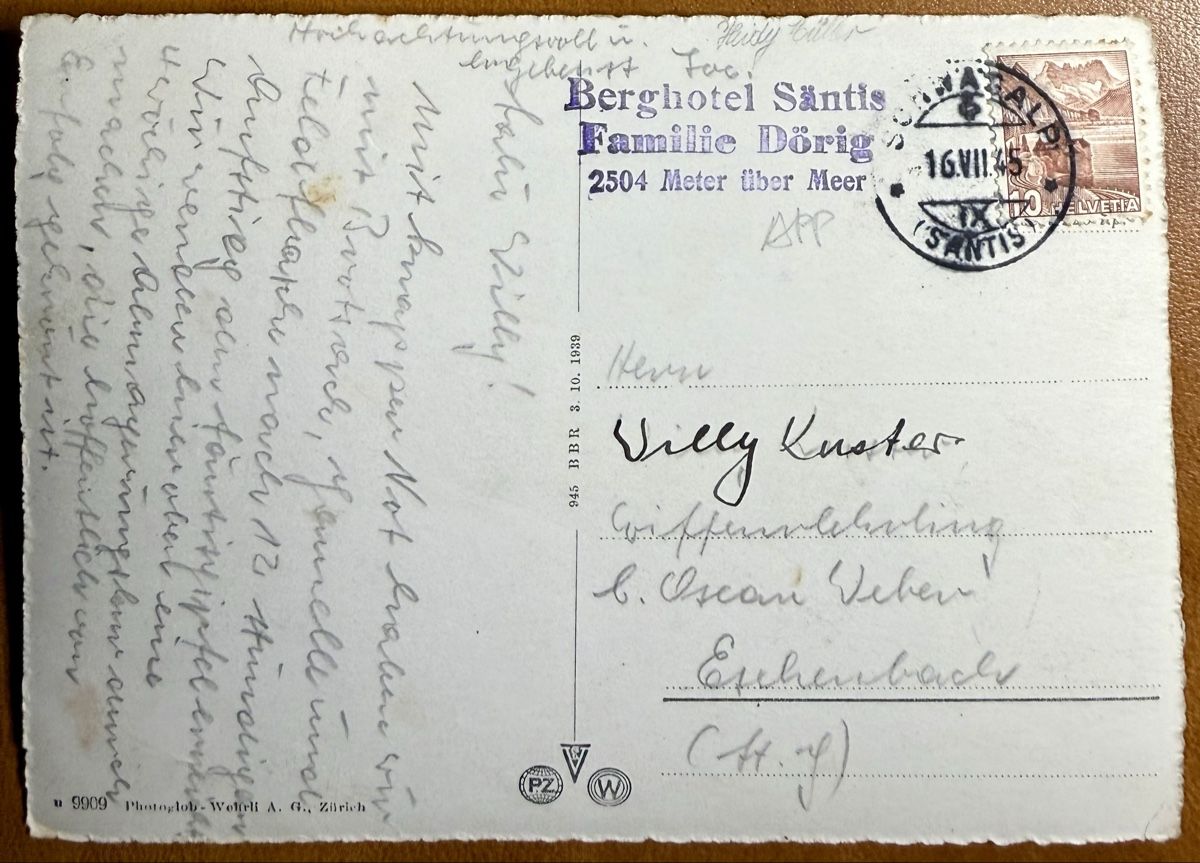 Salü Willy!
Mit knapper Not haben wir
mit Brotsack, Gamelle und
Feldflasche nach 12 stündigem
Aufstieg den Säntisgipfel erreicht.
Wir werden hier oben eine
wöchige Abmagerungskur durch
machen, die hoffentlich von
Erfolg gekrönt ist.
Hochachtungsvoll u.
ergebenst Joc.
Heidy
Berghotel Säntis
Familie Dörig
2504 Meter über Meer
SCHWÄGALP
6
16.VII.45
IX
(SÄNTIS)
10 HELVETIA
APP
945 BBR 3. 10. 1939
Herrn
Willy Kuster
b. Oscar Weber
Eschenbach
(St. G)
PZ
W
n 9909 Photoglob-Wehrli A. G., Zürich